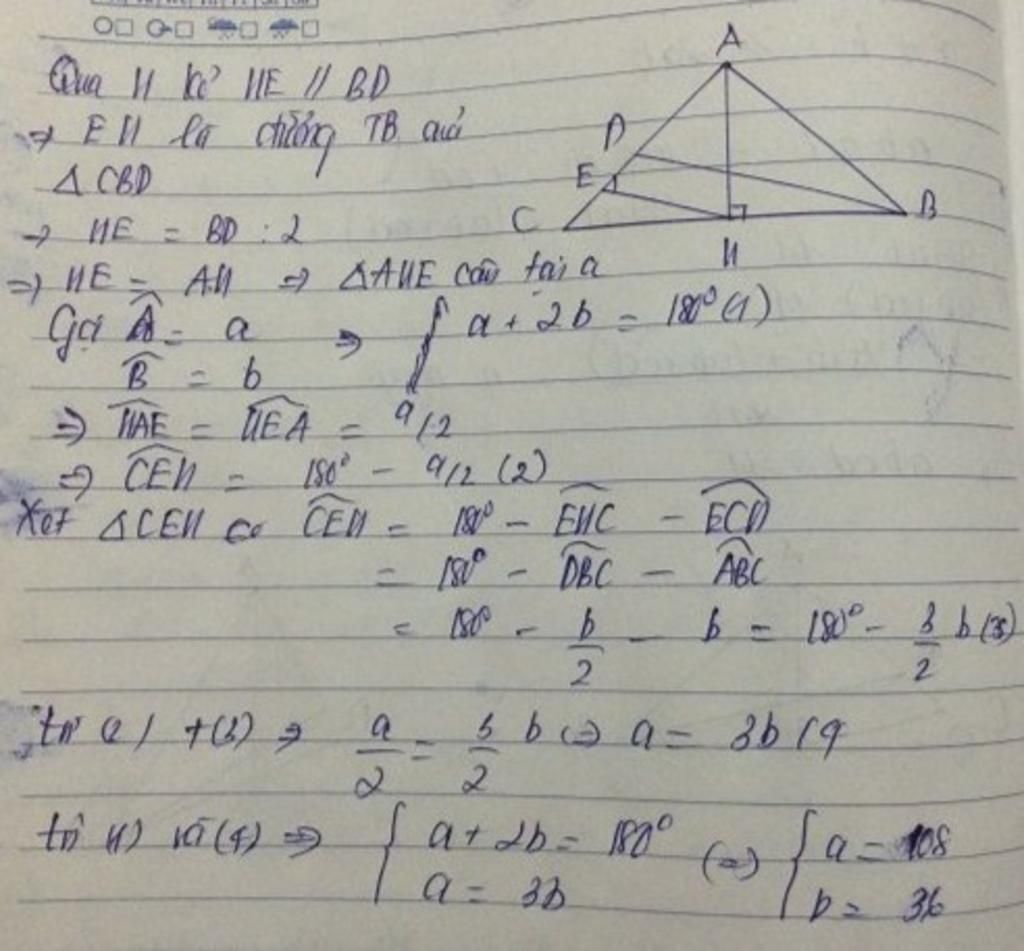 Qua H kẻ HE // BD
=> EH là đường TB của
Δ CBD
=> HE = BD : 2
=> HE = AH => ΔAHE cân tại a
Gọi Â = a => { a + 2b = 180° (1)
B̂ = b
=> HAE = HEA = a/2
=> CEH = 180° - a/2 (2)
Xét ΔCEH có CEH = 180° - EHC - ECH
= 180° - DBC - ABC
= 180° - b/2 - b = 180° - 3/2 b (3)
từ (2) + (3) => a/2 = 3/2 b <=> a = 3b (4
từ (1) và (4) => { a + 2b = 180° (=) { a = 108
a = 3b b = 36
A
D
E
C
B
H